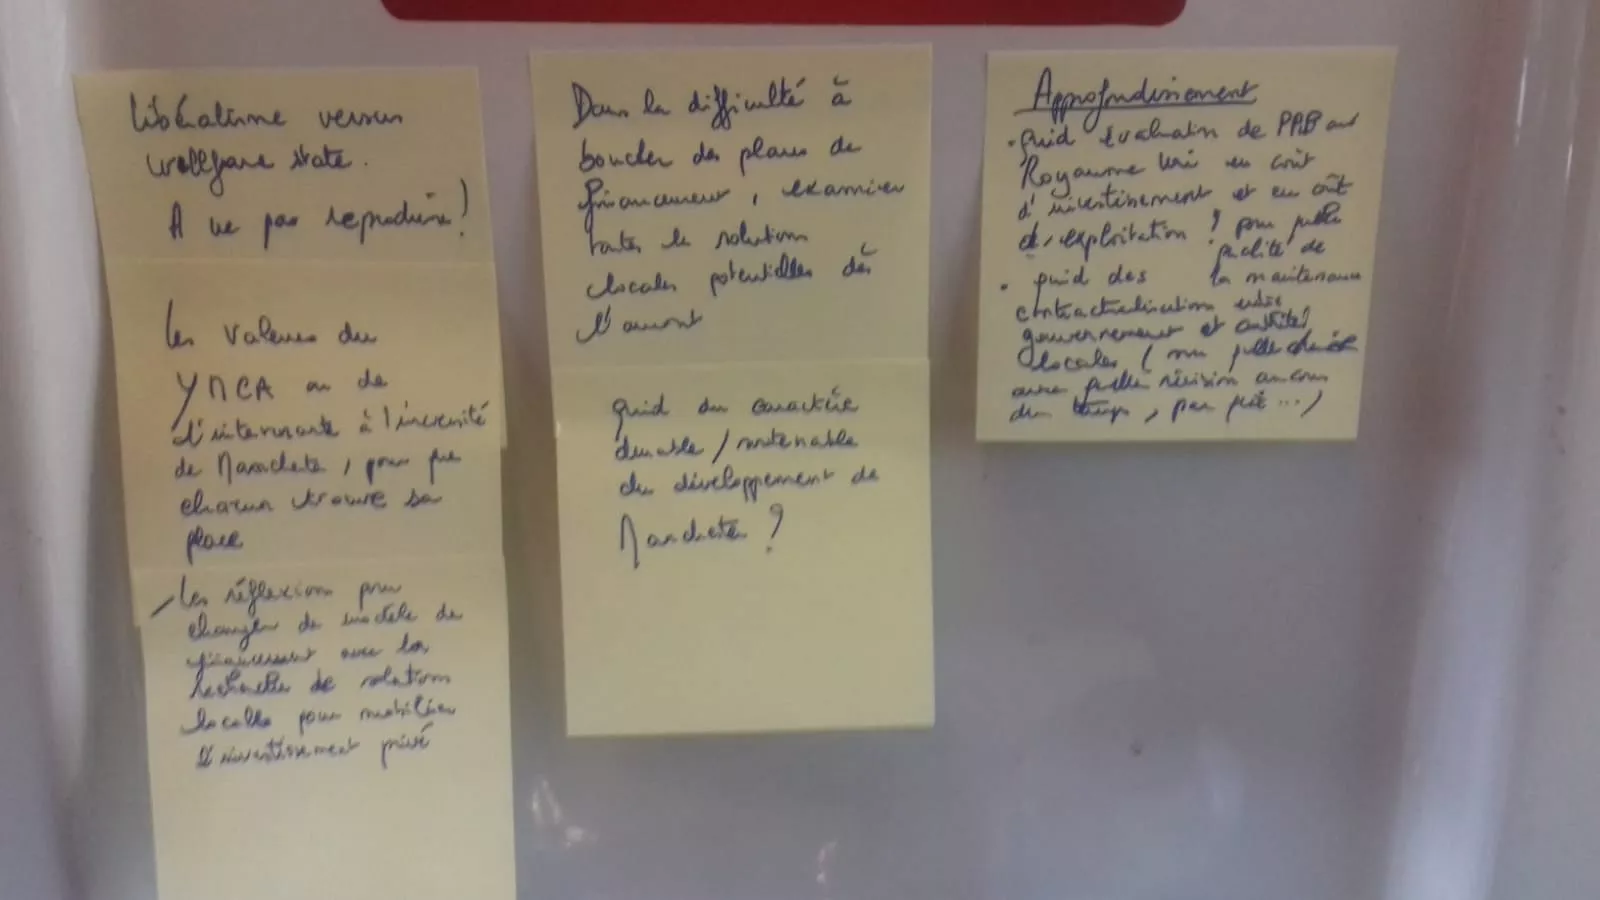 Libéralisme versus
wellfare state.
A ne pas reproduire !
Les valeurs du
YMCA ou de
l'université
de Manchester, pour que
chacun trouve sa
place
Les réflexions pour
changer de modèle de
financement avec la
recherche de solutions
locales pour mobiliser
l'investissement privé
Dans la difficulté à
boucler des plans de
financement, examiner
toutes les solutions
locales potentielles dès
l'amont
quid du caractère
durable / soutenable
du développement de
Manchester ?
Approfondissement
. quid évaluation de au
Royaume Uni en coût
d'investissement et en coût
d'exploitation ? pour quelle
qualité de
la maintenance
. quid des
contractualisations entre
gouvernement et autorités
locales ( sur quelle durée
avec quelle révision au cours
du temps, par qui ... )